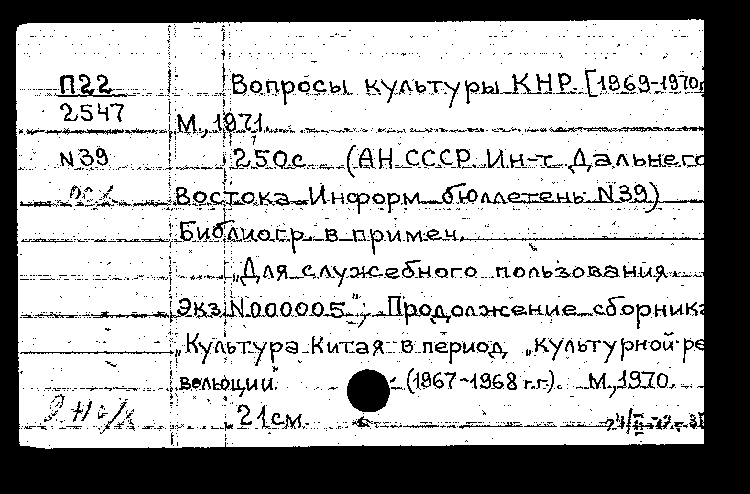 П22
2547
N39
Вопросы культуры КНР. [1969-1970г
М., 1971.
250с (АН СССР. Ин-т Дальнего
Востока. Информ. бюллетень N39)
Библиогр. в примеч.
„Для служебного пользования
Экз. N000005"; Продолжение сборника
„Культура Китая в период „культурной ре
волюции" (1967-1968 г.г.). М., 1970.
21см.